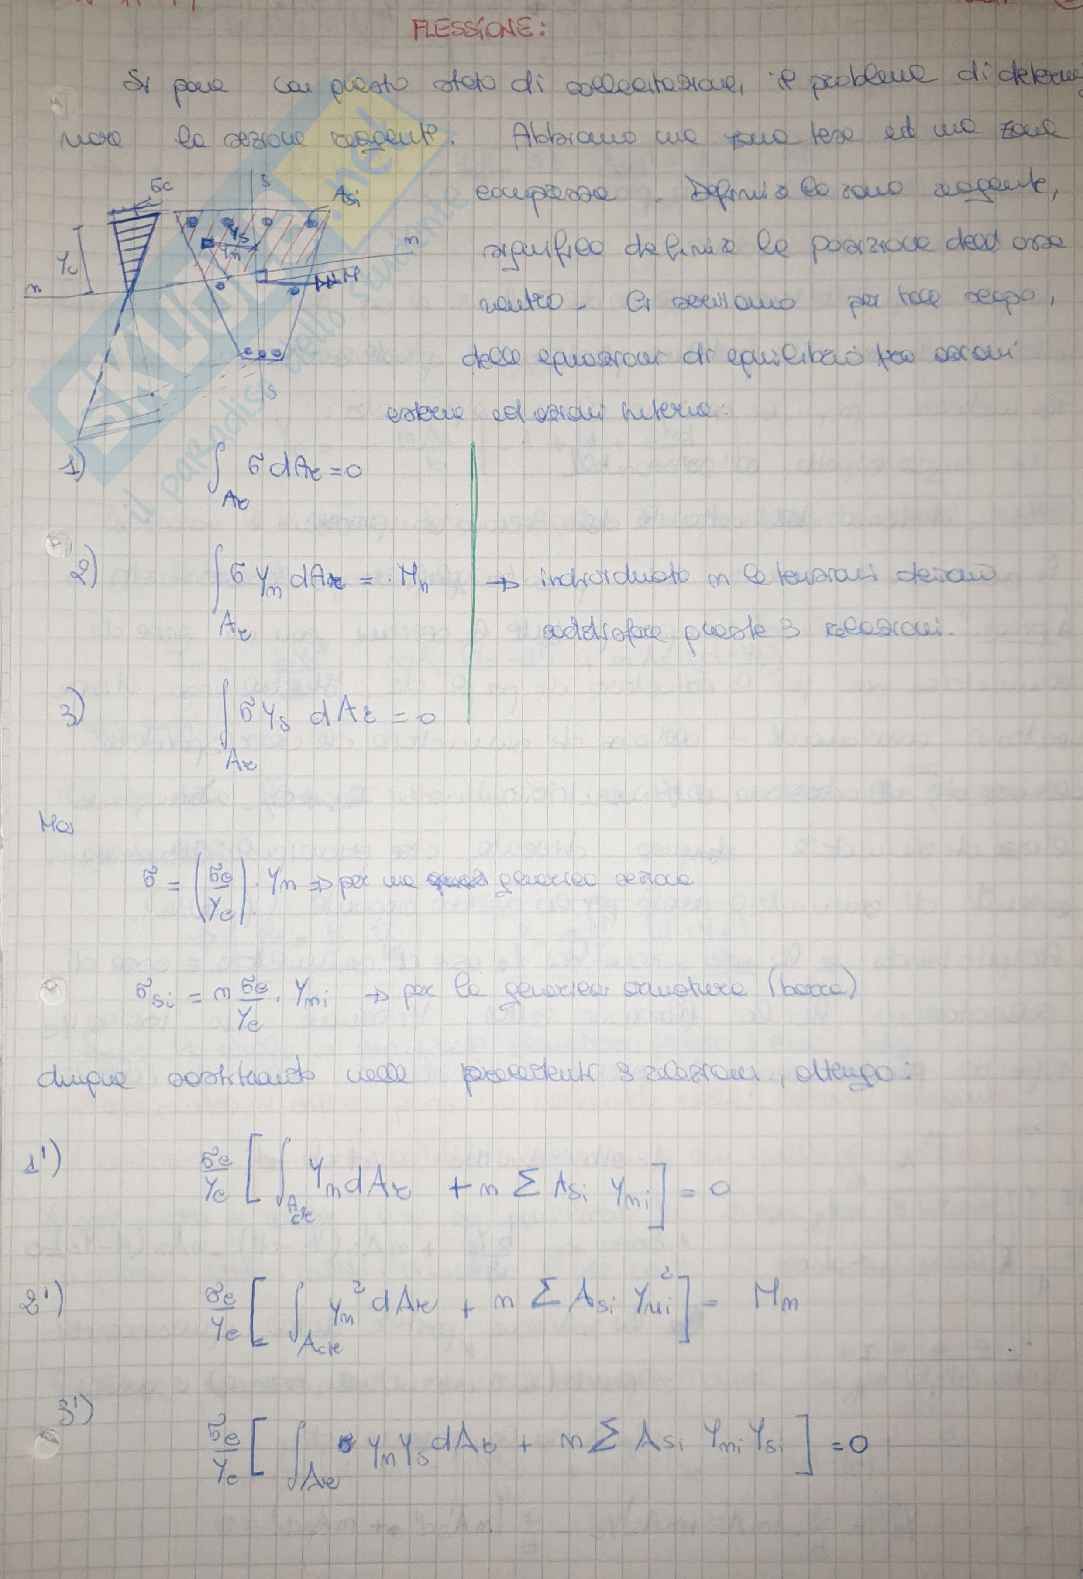 FLESSIONE:
Si pone con questo stato di sollecitazione, il problema di determi
nare la sezione reagente. Abbiamo una zona tesa ed una zona
compressa. Definire la zona reagente,
significa definire la posizione dell'asse
neutro. Ci serviamo per tale scopo,
delle equazioni di equilibrio fra azioni
esterne ed azioni interne:
σc
s
Asi
Yc
n
Ys
Yn
n
M
s
1) ∫Ar σ dAr = 0
2) ∫Ar σ Yn dAr = Mn → individuato n le tensioni devono
soddisfare queste 3 relazioni.
3) ∫Ar σ Ys dAr = 0
Ma
σ = (σc/Yc) · Yn ⇒ per una generica sezione
σsi = n σc/Yc · Yni → per la generica armatura (barra)
dunque sostituendo nelle precedenti 3 relazioni, ottengo:
1') σc/Yc [∫Acr Yn dAr + n Σ Asi Yni] = 0
2') σc/Yc [∫Acr Yn² dAr + n Σ Asi Yni²] = Mn
3') σc/Yc [∫Ar Yn Ys dAr + n Σ Asi Yni Ysi] = 0
SKUOLA.net
il paradiso dello studente